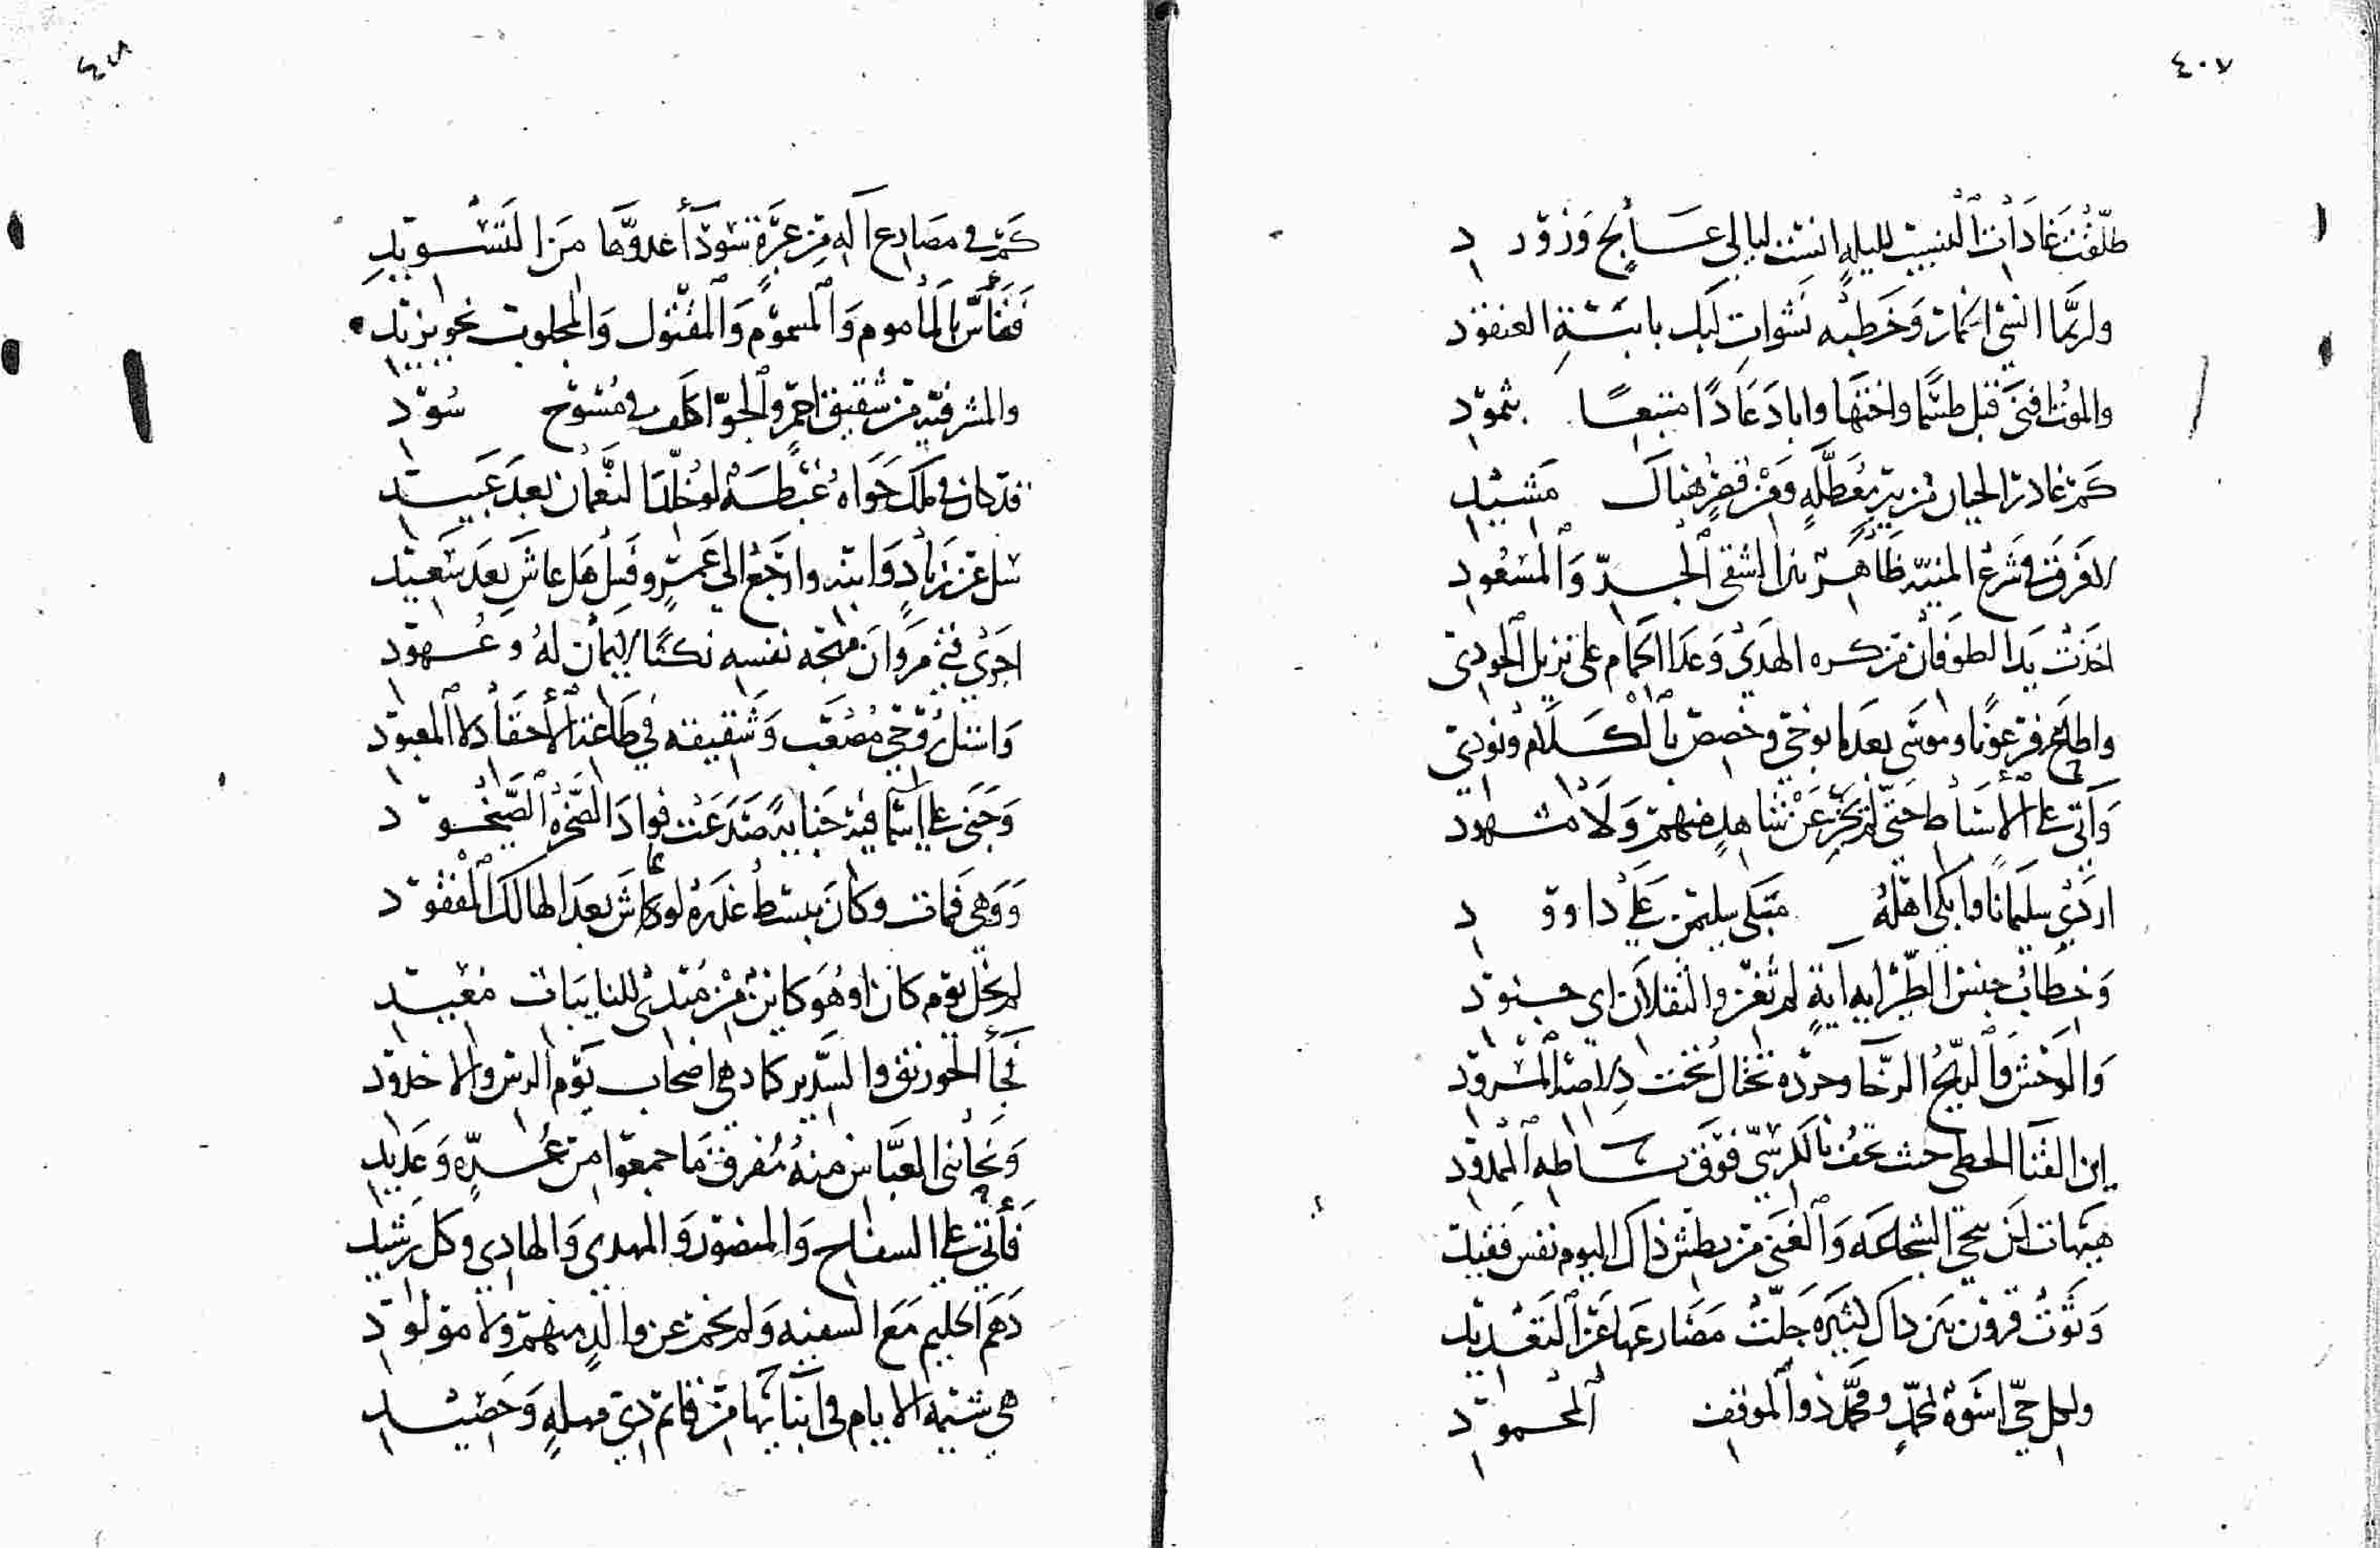 ٤٠٧
طلّقت عادات النسيب لليلةٍ انست ليالي عالج وزرود
ولربما انسى الخمار وخطبه نشوات ليلك بابنة العنقود
والموت افنى قبل طسمًا واختها واباد عادًا متبعًا بثمود
كم غادر الحيان من بيرٍ معطلةٍ ومن قصرٍ هناك مشيد
لا فرق في شرع المنية ظاهر بين الشقي الجدّ والمسعود
اخذت يد الطوفان من كره الهدى وعدا الحمام على نزيل الجودي
واطاح فرعونًا وموسى بعد ما نوجي وخصص بالكلام ونودي
وأتى على الأسباط حتى لم تخبر عن شاهدٍ منهم ولا مشهود
اردى سليمانًا وابكى اهله مبكى سليمن على داوود
وخطاب جنس الطير ايه آيةٍ لم تغن والثقلان اي جنود
والوحش والريح الرخا وجرده تختال تحت المسرود
اين القنا الخطي حيث تحف بالكرسي فوق بساطه الممدود
هيهات لن تنجي الشجاعة والغنى من بطش ذاك اليوم نفس فقيد
وثوت قرون بين ذاك كثيرة جلّت مصارعها عن التعديد
ولكل حيّ اسوة بمحمدٍ ومحمد ذو الموقف المحمود
٤٠٨
كم في مصارع آله من عزةٍ سود أعدوّها من التسويد
فتأسّ بالمأموم والمسموم والمقتول والمجلوب نحو يزيد
والمشرفية من شقيق احمرٍ والجوّ اكلف في مسوح سود
قد كان في ملك حواه غبطة لو خلّد النعمان بعد عبيد
سل عن زيادٍ وابنه وارجع الى عمرٍو وقل هل عاش بعد سعيد
اجرى فتى مروان مهجة نفسه نكثًا لايمان له وعهود
واستل روحي مصعب وشقيقه في طاعة الأحقاد لا المعبود
وجنى على اسما فيه جناية صدعت فواد الصخرة الصيخود
ووهى فمات وكان يبسط عذره لو عاش بعد الهالك المفقود
لم يخل يوم كان او هو كاين من مبدئ للنايبات معيد
فجأ الخورنق والسدير كما دهى اصحاب يوم الرس والاخدود
ونجا بني العباس منه مفرق ما جمعوا من عدّةٍ وعديد
فأتى على السفاح والمنصور والمهدي والهادي وكل رشيد
دهم الحليم مع السفيه ولم يخم عن والدٍ منهم ولا مولود
هي شيمة الايام في أبنائها من قايم وحصيد